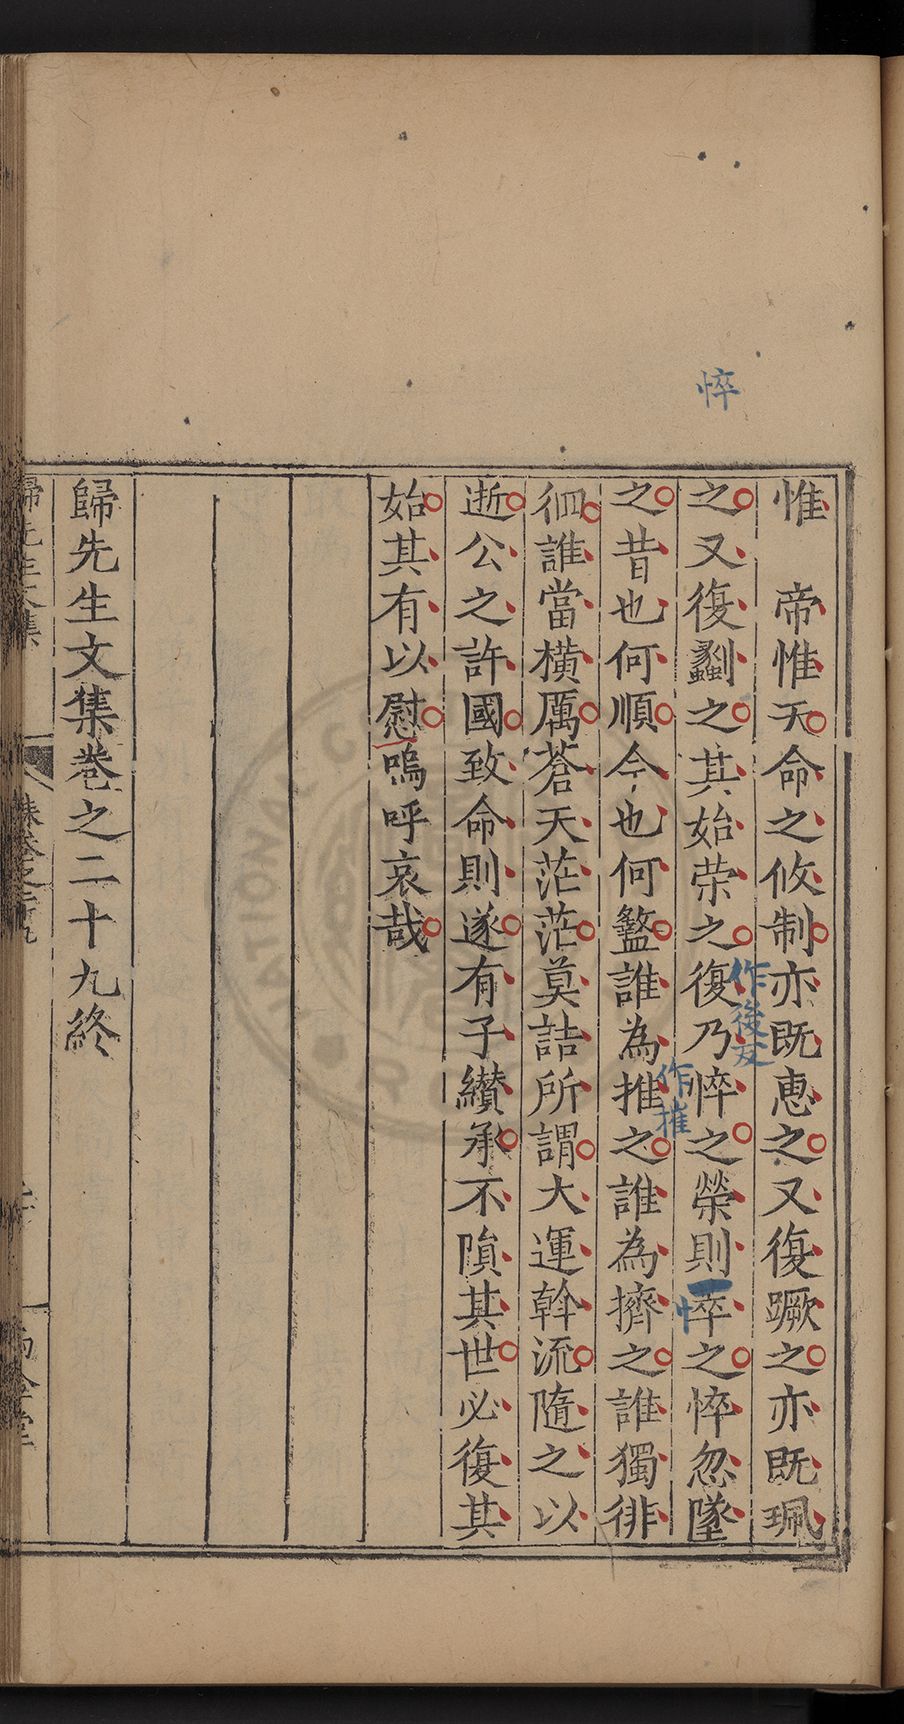 悴
惟　帝惟天命之攸制亦既惠之又復蹶之亦既珮
之又復劙之其始荣之復乃悴之榮則悴之悴忽墬
作後反
之昔也何順今也何盭誰為推之誰為擠之誰獨徘
作摧
徊誰當橫厲蒼天茫茫莫詰所謂大運斡流隨之以
逝公之許國致命則遂有子纘承不隕其世必復其
始其有以慰嗚呼哀哉
歸先生文集卷之二十九終
歸先生文集